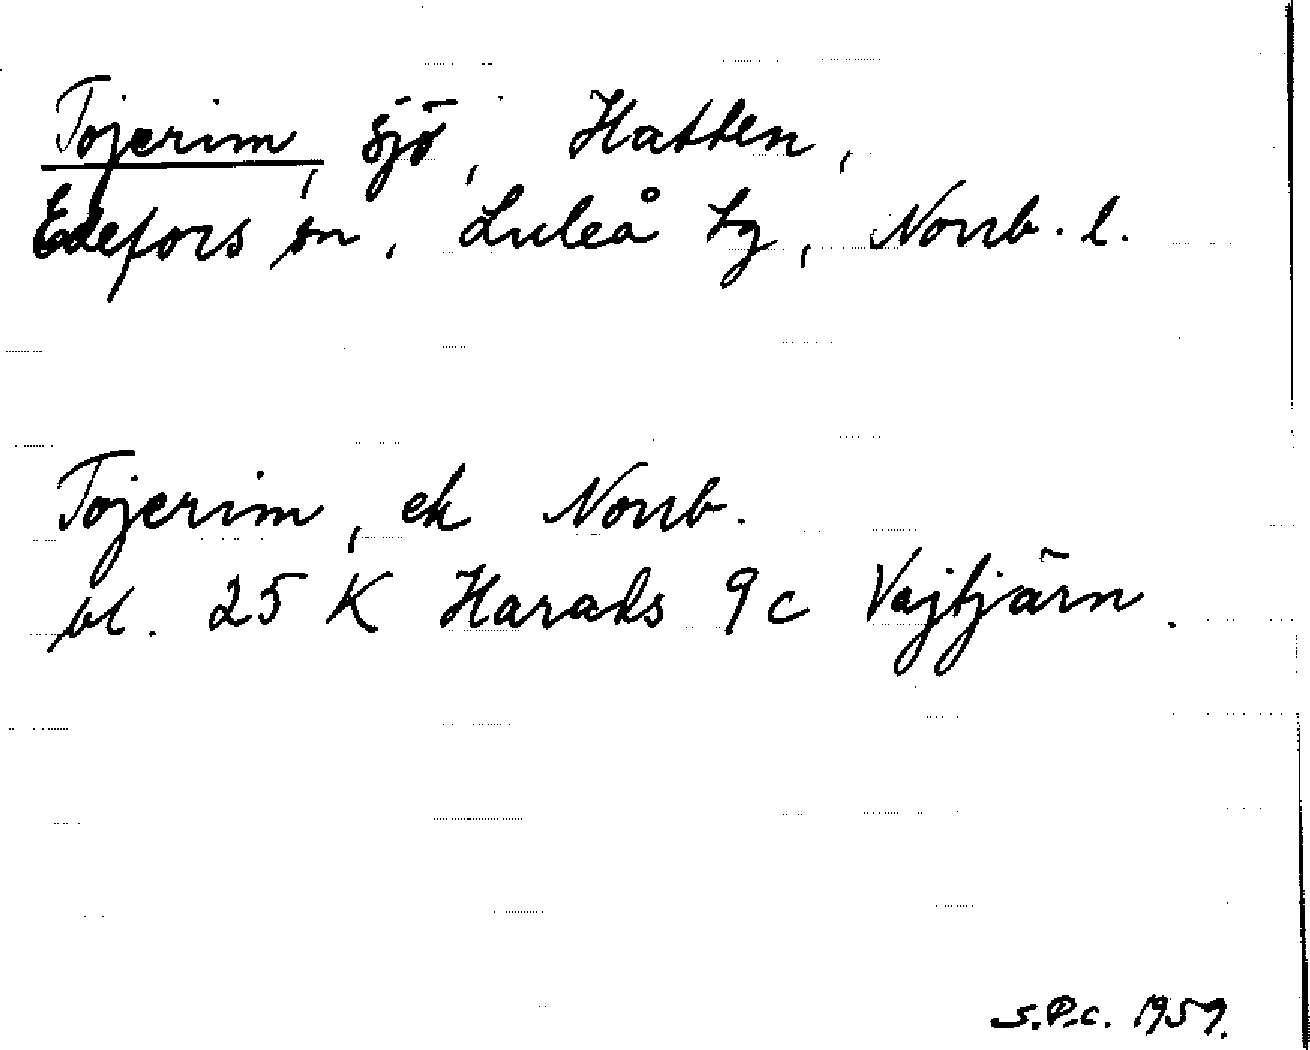 Tojerim, sjö, Hatten,
Edefors sn, Luleå tg, Norrb. l.
Tojerim, ek Norrb.
bl. 25 K Harads 9c Vajtjärn.
S.P.c. 1959.